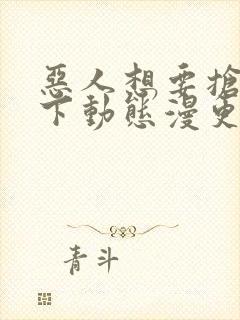 惡人想要搶
下動態漫更
青斗